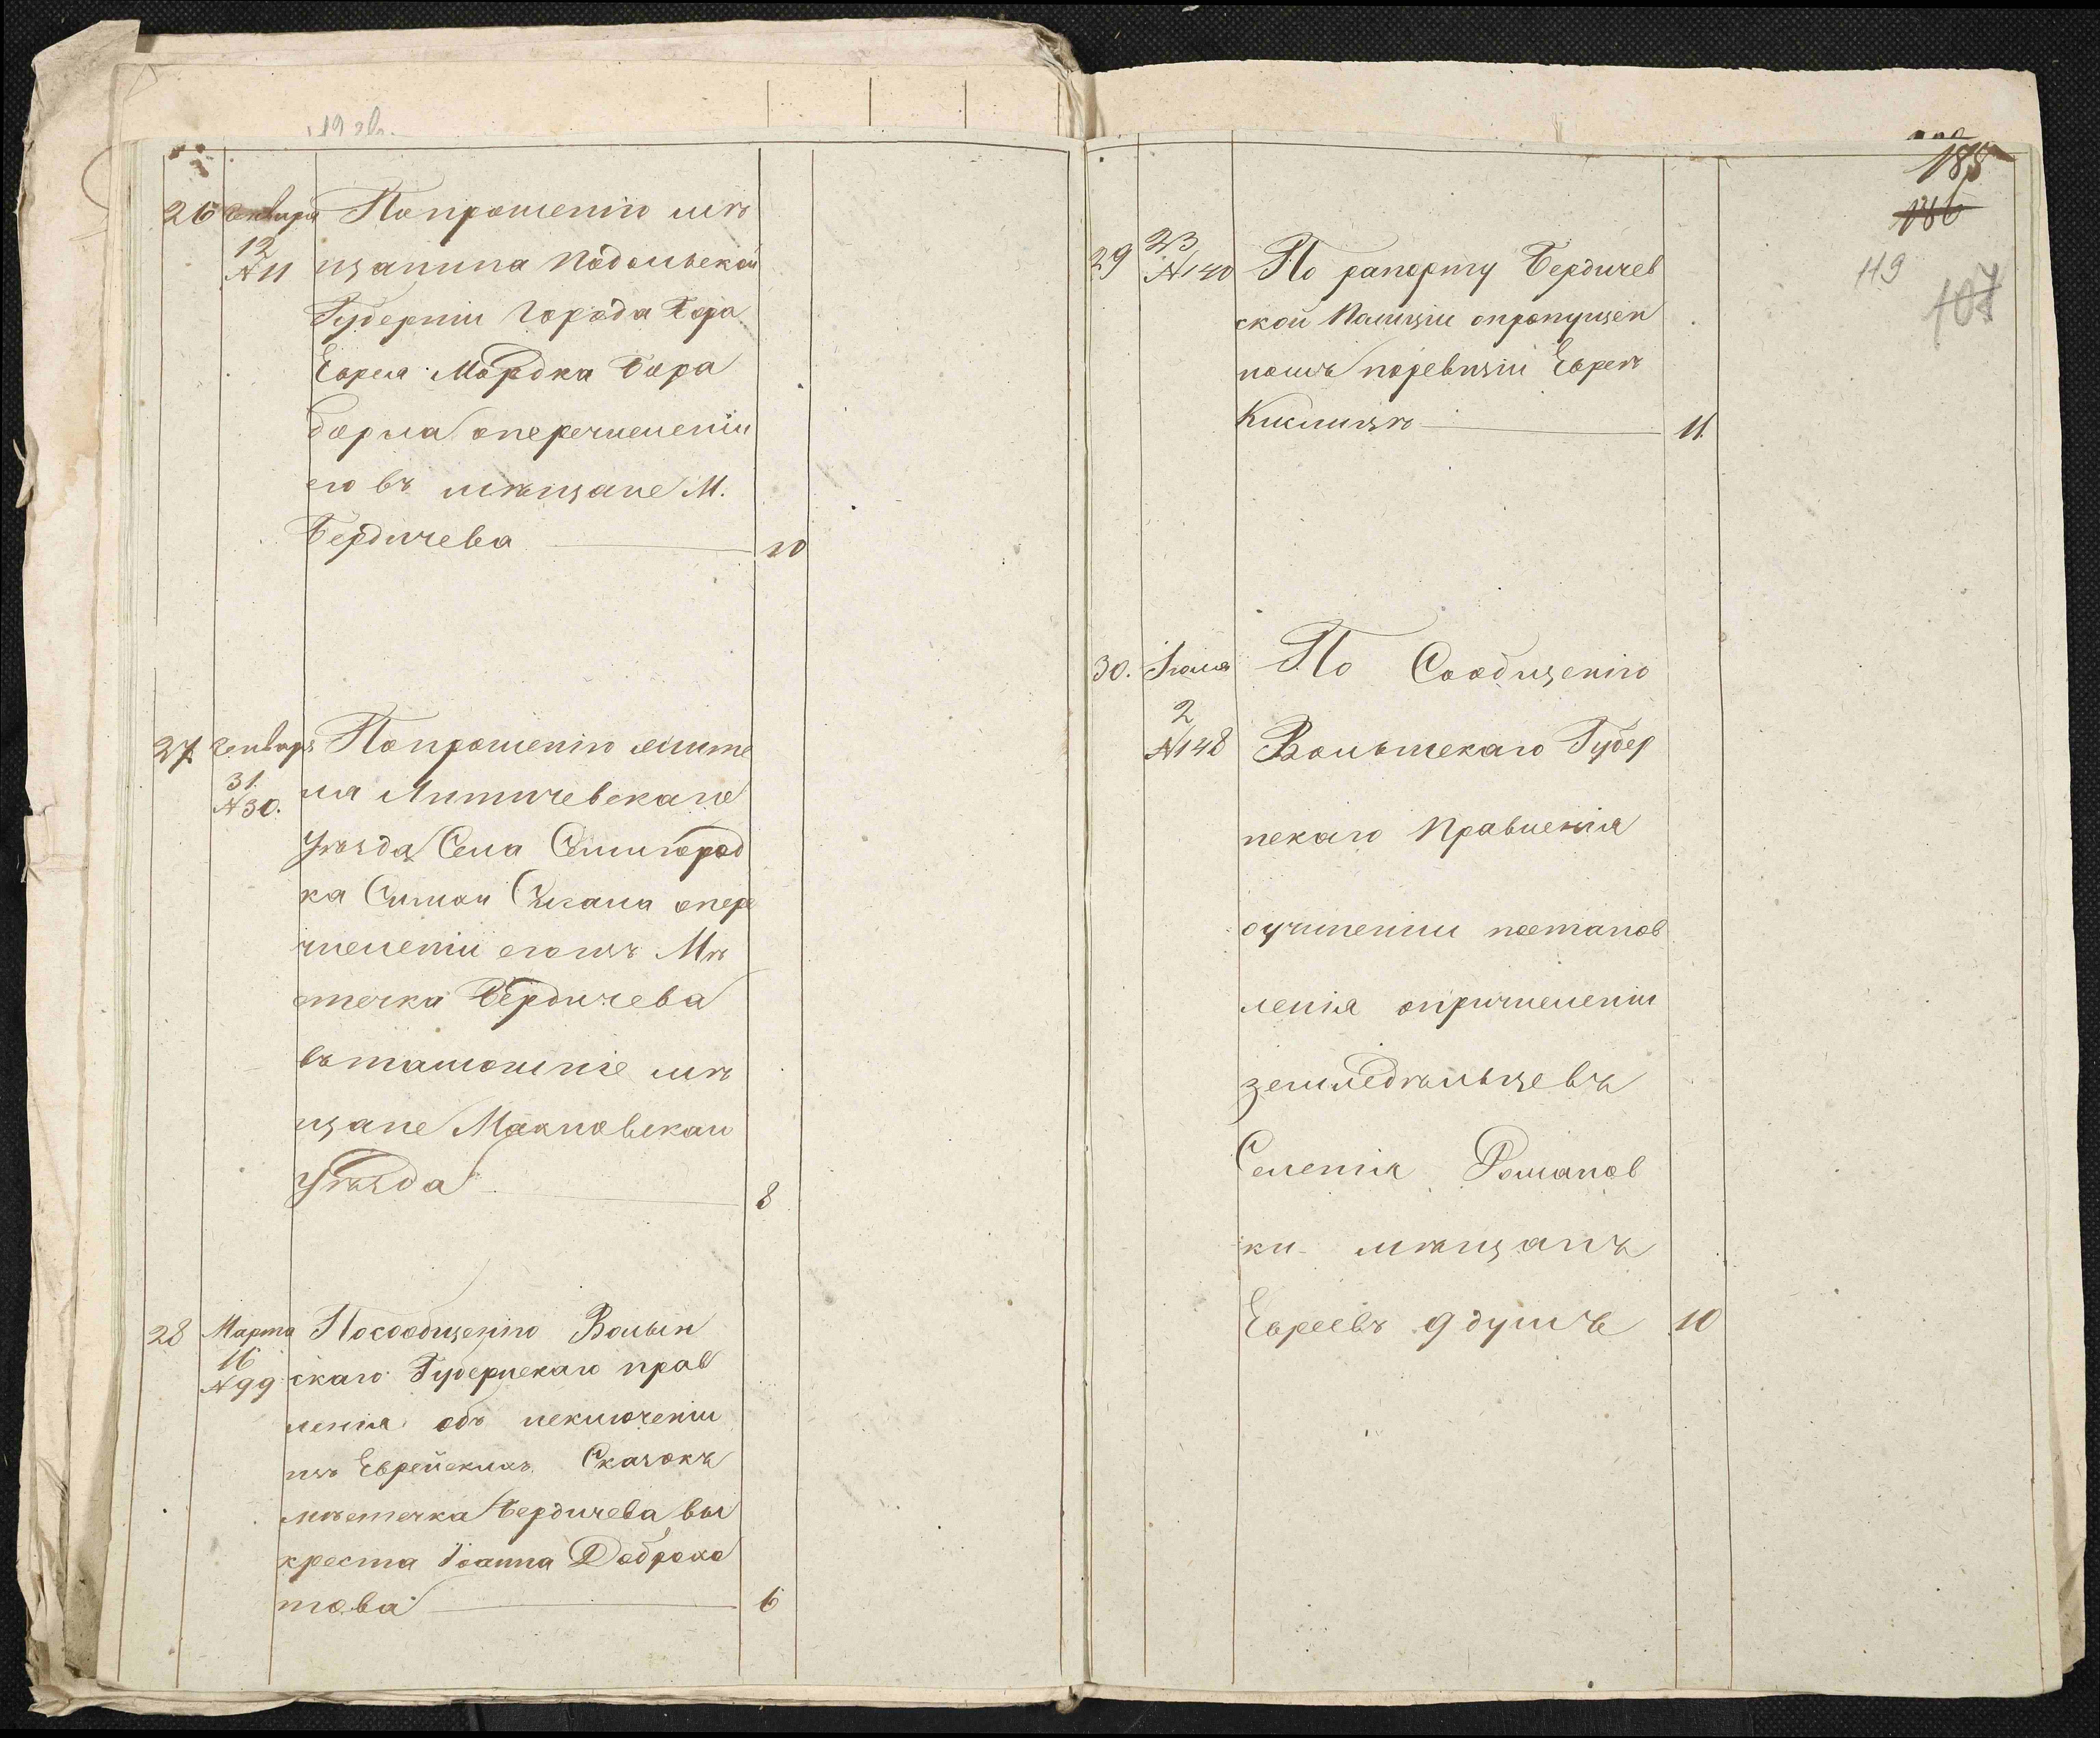 26 Генваря Попрошенію мѣ
12
№11 щанина Подольской
Губерніи Города Бара
Еврея Мордка Бара
о перечисленіи
его въ мѣщане М.
Бердичева 10
27 Генваря Попрошенію жите
31.
№30. ля Литичевскаго
Уѣзда Села
ка опере
численіи его изъ Мѣ
стечка Бердичева
въ тамошніе мѣ
щане Махновскаи
Уѣзда 8
28 Марта Посообщенію Волын
16
№99 скаго Губернскаго прав
ленія объ исключеніи
изъ Еврейскихъ Сказокъ
мѣстечка Бердичева вы
креста Іоанна Доброхо
това 6
188
186
119
107
29 23
№140 По рапорту Бердичев
ской Полиціи опропущен
номъ поревизіи Евреѣ
Кислицѣ 11
30. Іюля По Сообщенію
2
№148 Волынскаго Губер
нскаго Правленія
оучиненіи постанов
ленія опричисленіи
земледѣльцевъ
Селенія Романов
ки мѣщанъ
Евреевъ 9 душъ 10